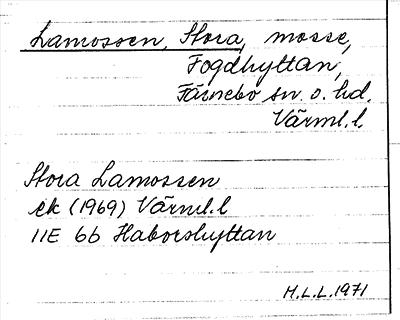 Lamossen, Stora, mosse,
Fogdhyttan,
Färnebo sn. o. hd.
Värml. l.
Stora Lamossen
ek (1969) Värml. l
11E 6b Haborshyttan
H.L.L. 1971